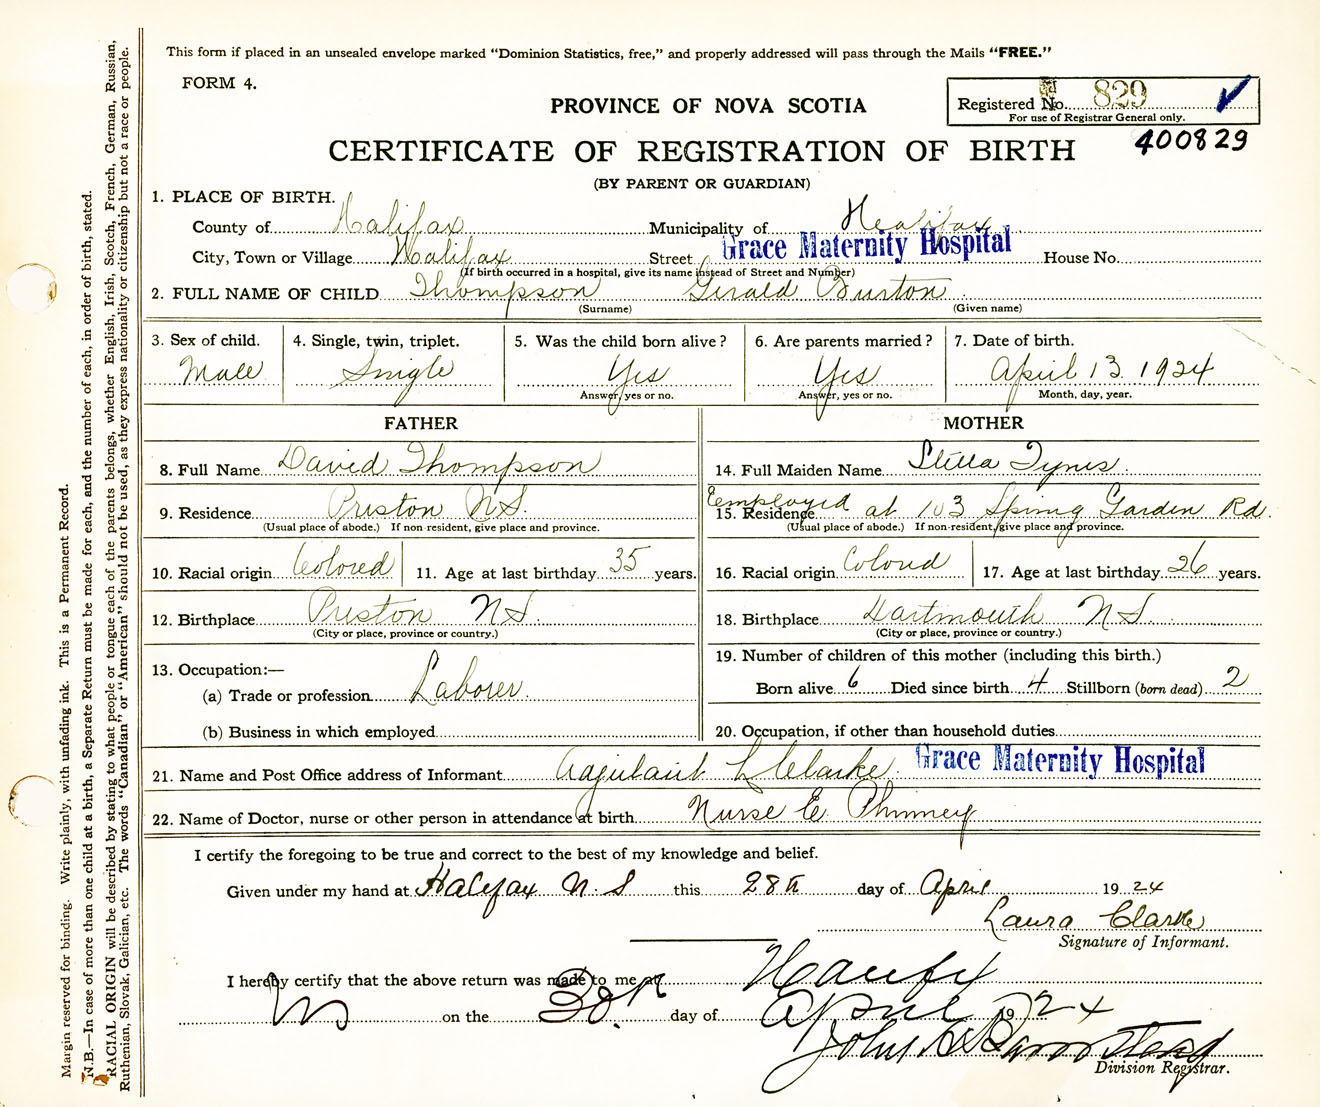 This form if placed in an unsealed envelope marked "Dominion Statistics, free," and properly addressed will pass through the Mails "FREE."
FORM 4.
PROVINCE OF NOVA SCOTIA
Registered No. 829
For use of Registrar General only.
400829
CERTIFICATE OF REGISTRATION OF BIRTH
(BY PARENT OR GUARDIAN)
1. PLACE OF BIRTH.
County of Halifax Municipality of Halifax
City, Town or Village Halifax Street Grace Maternity Hospital House No.
(If birth occurred in a hospital, give its name instead of Street and Number)
2. FULL NAME OF CHILD Thompson Gerald Burton
(Surname) (Given name)
3. Sex of child. 4. Single, twin, triplet. 5. Was the child born alive? 6. Are parents married? 7. Date of birth.
Male Single Yes Yes April 13 1924
Answer, yes or no. Answer, yes or no. Month, day, year.
FATHER MOTHER
8. Full Name David Thompson 14. Full Maiden Name Stella Tynes
9. Residence Preston N S. 15. Residence Employed at 103 Spring Garden Rd.
(Usual place of abode.) If non-resident, give place and province. (Usual place of abode.) If non-resident, give place and province.
10. Racial origin Colored 11. Age at last birthday 35 years. 16. Racial origin Colored 17. Age at last birthday 26 years.
12. Birthplace Preston N S. 18. Birthplace Dartmouth N S.
(City or place, province or country.) (City or place, province or country.)
13. Occupation:— 19. Number of children of this mother (including this birth.)
(a) Trade or profession Laborer. Born alive 6 Died since birth 4 Stillborn (born dead) 2
(b) Business in which employed 20. Occupation, if other than household duties
21. Name and Post Office address of Informant Adjutant L Clarke Grace Maternity Hospital
22. Name of Doctor, nurse or other person in attendance at birth Nurse E. Phinney
I certify the foregoing to be true and correct to the best of my knowledge and belief.
Given under my hand at Halifax N. S this 28th day of April 1924
Laura Clarke
Signature of Informant.
I hereby certify that the above return was made to me at Halifx
N S on the 30th day of April 1924
John
Division Registrar.
Margin reserved for binding. Write plainly, with unfading ink. This is a Permanent Record.
N.B.—In case of more than one child at a birth, a Separate Return must be made for each, and the number of each, in order of birth, stated.
RACIAL ORIGIN will be described by stating to what people or tongue each of the parents belongs, whether English, Irish, Scotch, French, German, Russian,
Ruthenian, Slovak, Galician, etc. The words "Canadian" or "American" should not be used, as they express nationality or citizenship but not a race or people.